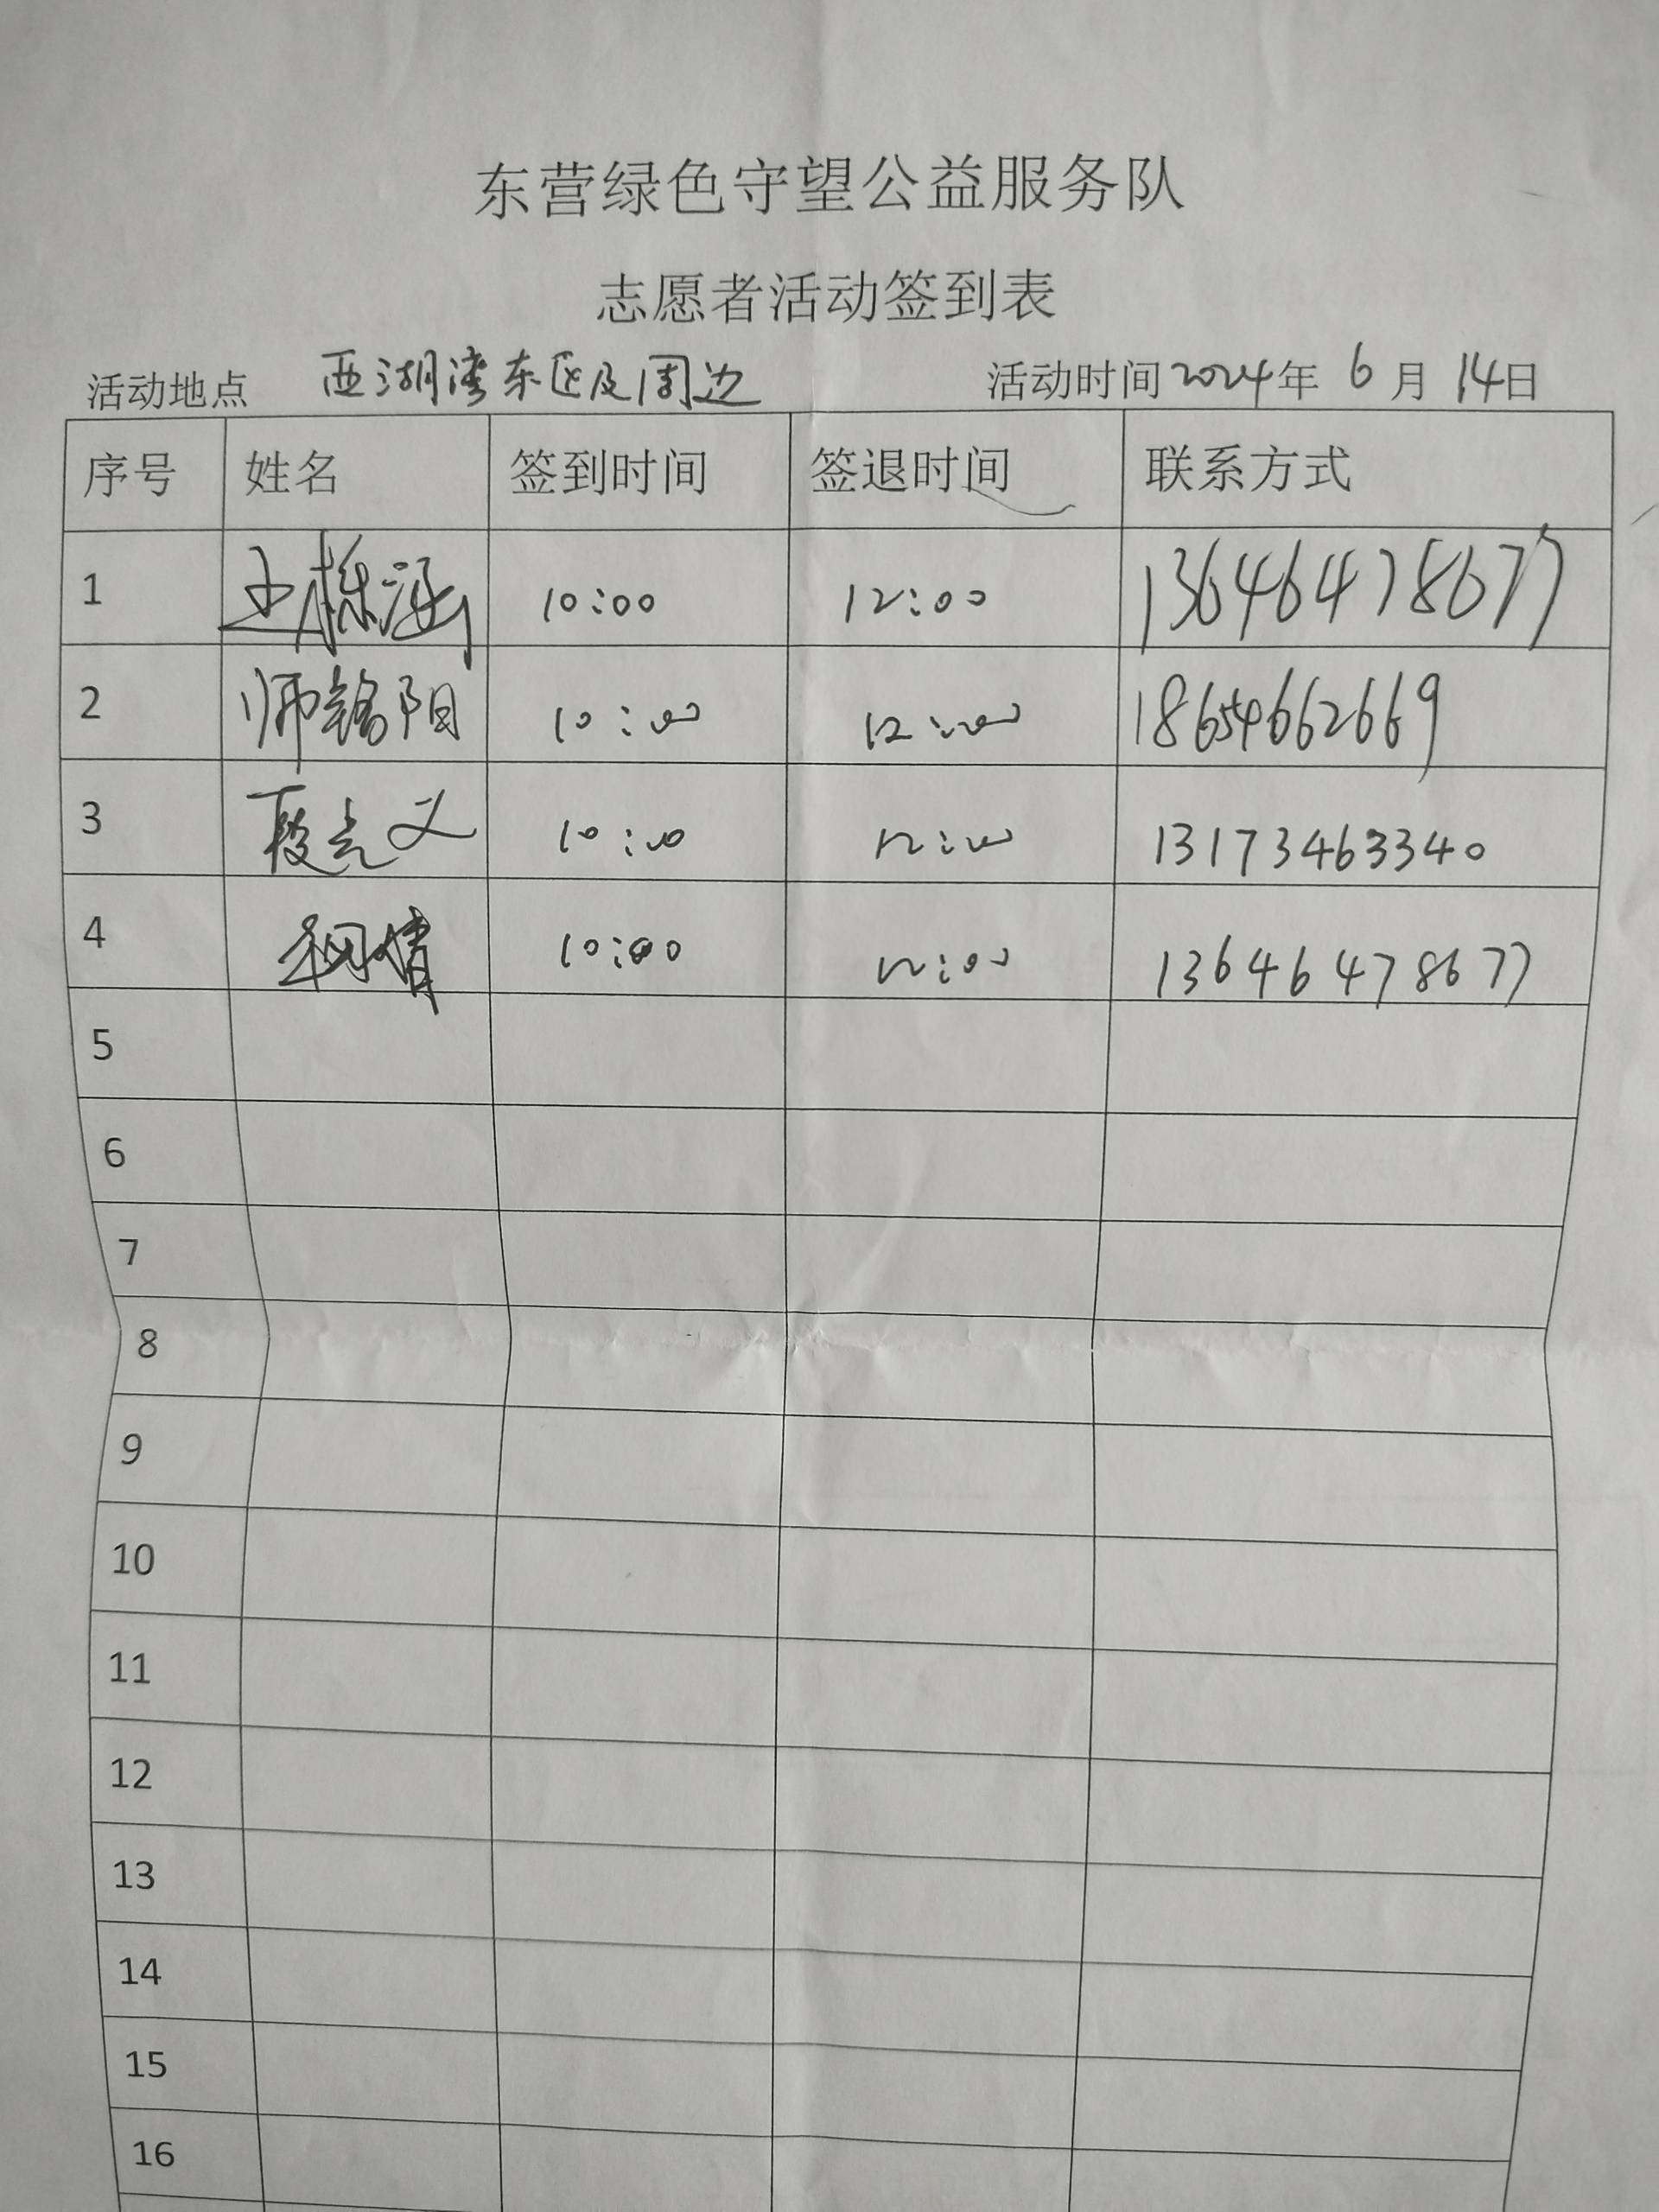 东营绿色守望公益服务队
志愿者活动签到表
活动地点 西湖湾东区及周边 活动时间2024年 6月 14日
序号 姓名 签到时间 签退时间 联系方式
1 王栋涵 10:00 12:00 13646478677
2 师铭阳 10:00 12:00 18654662669
3 段志义 10:00 12:00 13173463340
4 10:00 12:00 13646478677
5
6
7
8
9
10
11
12
13
14
15
16